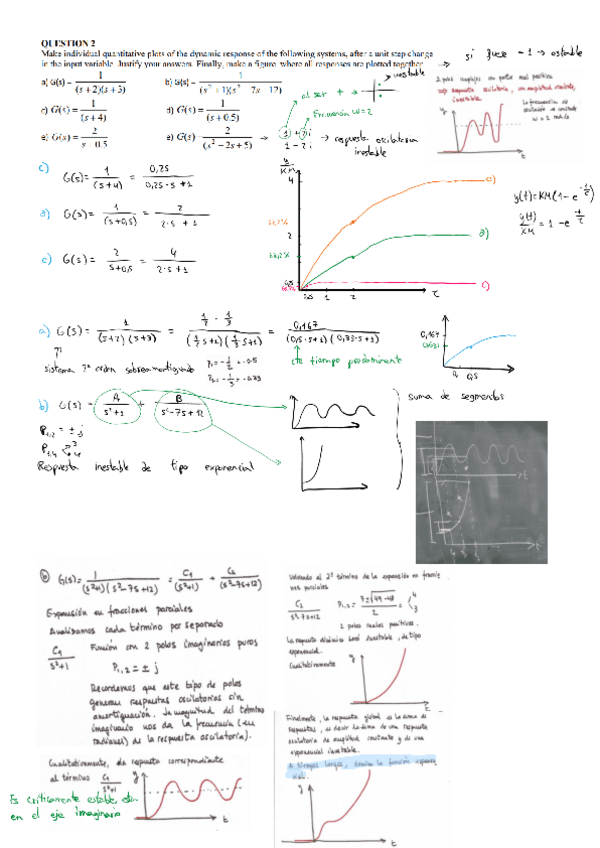 QUESTION 2
Make individual quantitative plots of the dynamic response of the following systems, after a unit step change
in the input variable. Justify your answers. Finally, make a figure where all responses are plotted together.
si fuese -1 → estable
a) G(s) = 1/((s+2)(s+3))
b) G(s) = 1/((s²+1)(s²-7s+12))
al ser +
inestable
c) G(s) = 1/(s+4)
d) G(s) = 1/(s+0.5)
Frecuencia ω=2
e) G(s) = 2/(s+0.5)
e) G(s) = 2/(s²-2s+5)
1 + 2i
1 - 2i
→ respuesta oscilatoria
inestable
2 polos complejos con parte real positiva
inestable.
ω = 2 rad/s
y
t
c) G(s) = 1/(s+4) = 0,25/(0,25·s+1)
d) G(s) = 1/(s+0,5) = 2/(2·s+1)
e) G(s) = 2/(s+0,5) = 4/(2·s+1)
y/KM
4
2
63,2%
0,5 1 2
τ
e)
d)
c)
y(t) = KM(1 - e^(-t/τ))
y(t)/KM = 1 - e^(-t/τ)
a) G(s) = 1/((s+2)(s+3)) = (1/2 · 1/3)/((1/2 s+1)(1/3 s+1)) = 0,167/((0,5·s+1)(0,33·s+1))
sistema 2º orden sobreamortiguado
P₁ = -1/2 = -0.5
P₂ = -1/3 = -0.33
cte tiempo predominante
0,167
0,5
b) G(s) = A/(s²+1) + B/(s²-7s+12)
P₁,₂ = ± j
P₃,₄ 3 4
Respuesta inestable de tipo exponencial
suma de segmentos
b) G(s) = 1/((s²+1)(s²-7s+12)) = C₁/(s²+1) + C₂/(s²-7s+12)
Expansión en fracciones parciales
Analizamos cada término por separado
C₁/(s²+1) Función con 2 polos imaginarios puros
P₁,₂ = ± j
Recordemos que este tipo de polos
generan respuestas oscilatorias sin
amortiguación. La magnitud del término
imaginario nos da la frecuencia (en
radianes) de la respuesta oscilatoria).
Cualitativamente, la respuesta correspondiente
al término C₁/(s²+1)
y
t
Es críticamente estable, están
en el eje imaginario
Volviendo al 2º término de la expansión en fraccio
nes parciales
C₂/(s²-7s+12) P₁,₂ = (7±√(49-48))/2 = 4 3
2 polos reales positivos.
La respuesta dinámica será inestable, de tipo
exponencial.
Cualitativamente
y
t
Finalmente, la respuesta global es la suma de
respuestas, es decir la suma de una respuesta
oscilatoria de amplitud constante y de una
exponencial inestable.
A tiempos largos, domina la función exponen
cial.
y
t